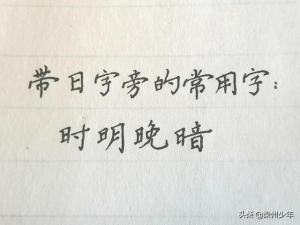 带日字旁的常用字：
时明晚暗
头条@梁州少年